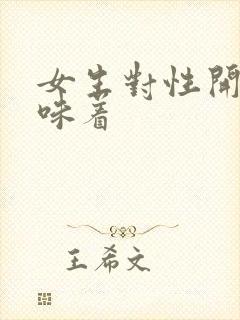 女生對性開
味着
王希文